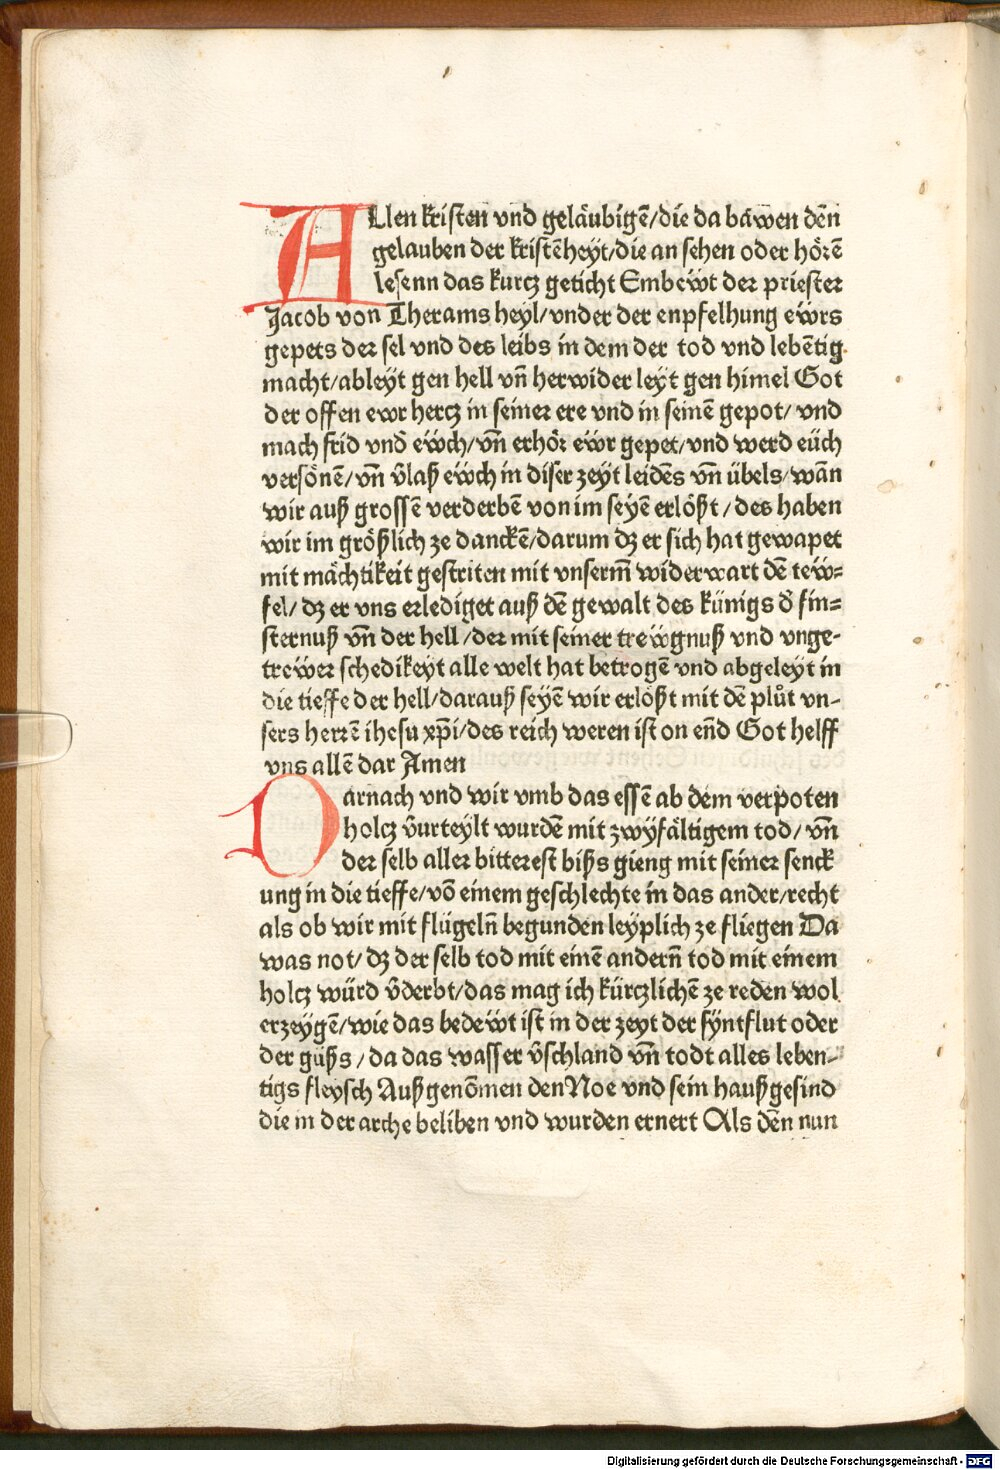 ALlen kristen vnd geläubigē/die da bäwen dēn
gelauben der kristēheyt/die an sehen oder hörē
lesenn das kurcz geticht Embewt der priester
Jacob von Therams heyl/vnder der enpfelhung ewrs
gepets der sel vnd des leibs in dem der tod vnd lebētig
macht/ableyt gen hell vn̄ herwider leyt gen himel Got
der offen ewr hercz in seiner ere vnd in seinē gepot/ vnd
mach frid vnd̄ ewch/vn̄ erhör ewr gepet/vnd werd eüch
versönē/vn̄ v̄laß ewch in diser zeyt leidēs vn̄ übels/wān
wir auß grossē verderbē von im seyē erlößt/des haben
wir im größlich ze danckē/darum dz er sich hat gewapet
mit mächtikeit gestriten mit vnserm̄ widerwart dē tew=
fel/ dz er vns erlediget auß dē gewalt des künigs d̄ fin=
sternuß vn̄ der hell/der mit seiner trewgnuß vnd vnge-
trewer schedikeyt alle welt hat betrogē vnd abgeleyt in
die tieffe der hell/darauß seyē wir erlößt mit dē plůt vn-
sers herrē ihesu xp̄i/des reich weren ist on en̄d Got helff
vns allē dar Amen
Darnach vnd wir vmb das essē ab dem verpoten
holcz v̄urteylt wurdē mit zwyfältigem tod/vn̄
der selb aller bitterest bißs gieng mit seiner senck
ung in die tieffe/vō einem geschlechte in das ander/recht
als ob wir mit flügeln̄ begunden leyplich ze fliegen Da
was not/dz der selb tod mit einē andern̄ tod mit einem
holcz würd v̄derbt/das mag ich kürczlichē ze reden wol
erzeygē/wie das bedewt ist in der zeyt der syntflut oder
der güßs/da das wasser v̄schland vn̄ todt alles leben-
tigs fleysch Außgenōmen den Noe vnd sein haußgesind
die in der arche beliben vnd wurden ernert Als dēn nun
Digitalisierung gefördert durch die Deutsche Forschungsgemeinschaft - DFG